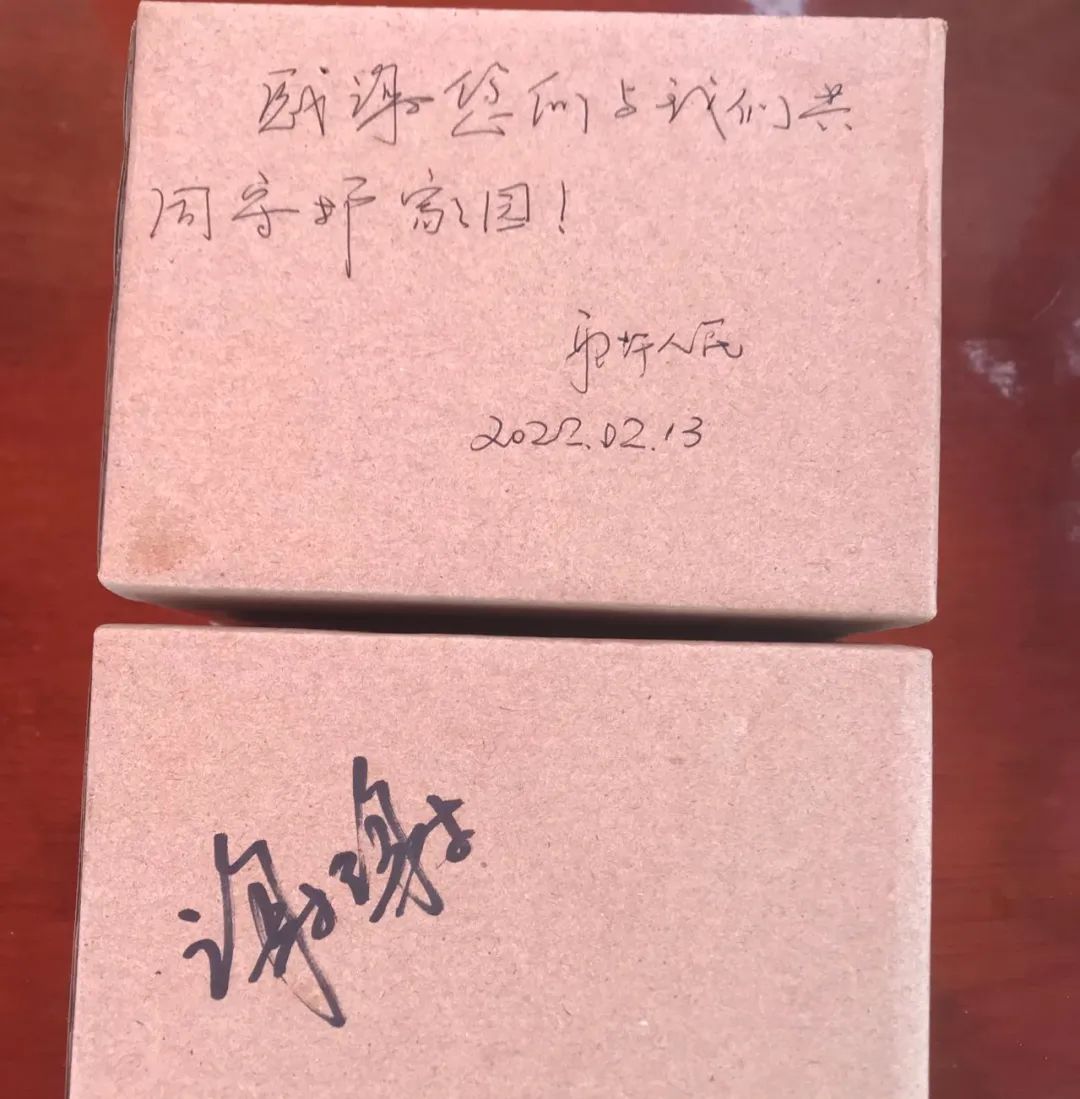 感谢您们与我们共
同守护家园！
人民
2022.02.13
谢谢